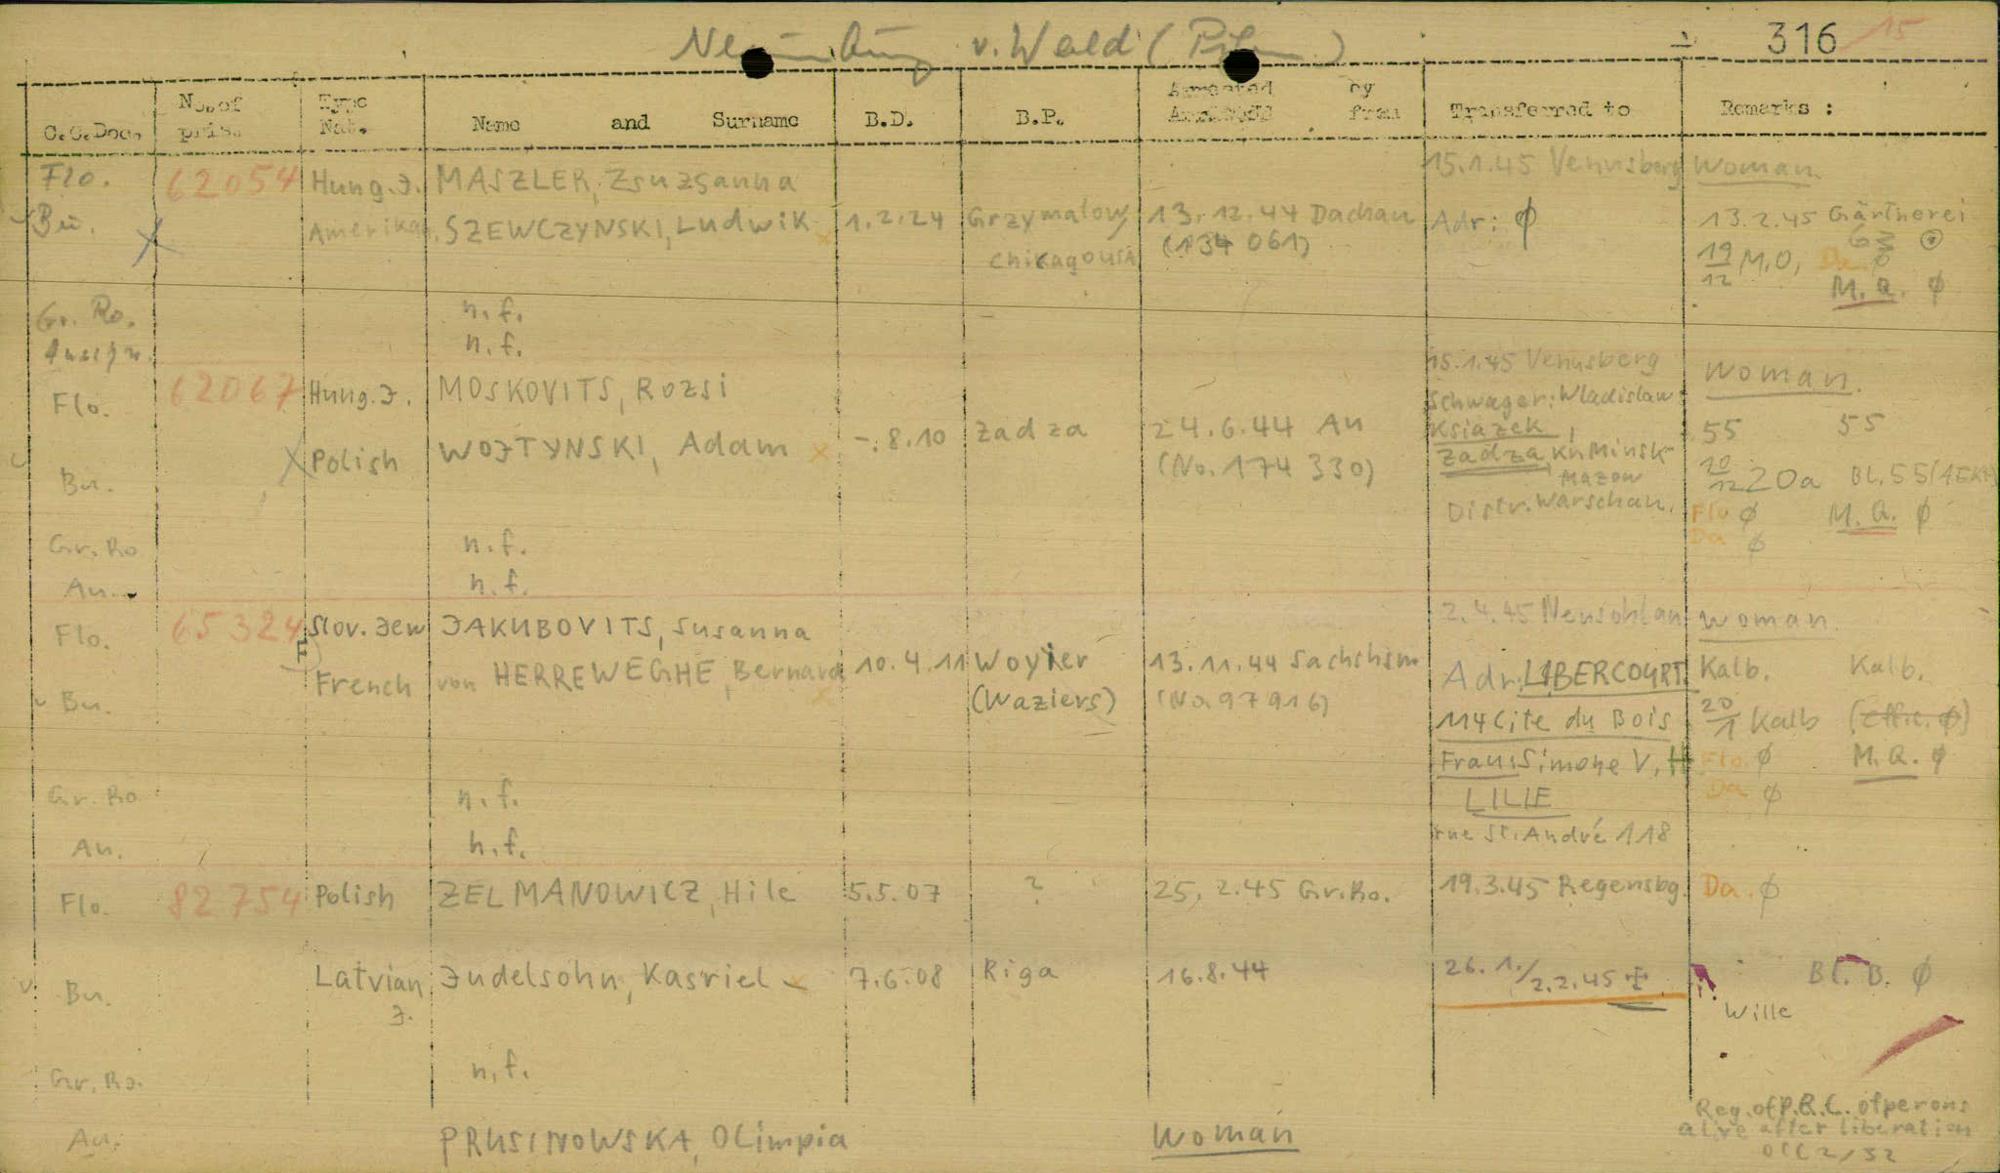 v. Wald ( ) 316 15
C.C.Doc. No. of pris. Type Nat. Name and Surname B.D. B.P. Arrested by from Transferred to Remarks :
15.1.45 Venusberg woman
Flo. 62054 Hung.J. MASZLER, Zsuzsanna
Bu. Amerikan. SZEWCZYNSKI, Ludwik 1.2.24 Grzymalow, 13.12.44 Dachau Adr: ϕ 13.2.45 Gärtnerei
Chikagousa (134 061) 19/12 M.O, Da ϕ
M.Q. ϕ
Gr. Ro. n.f.
n.f.
15.1.45 Venusberg woman.
Flo. 62067 Hung.J. MOSKOVITS, Rozsi
Schwager: Wladislaw
Bu. Polish WOJTYNSKI, Adam -.8.10 Zadza 24.6.44 Au Ksiazek, 55 55
(No. 174 330) Zadza, Kr. Minsk 20a Bl. 55
Mazow
Distr. Warschau. Flo ϕ M.Q. ϕ
Da ϕ
Gr. Ro n.f.
Au. n.f.
2.4.45 woman.
Flo. 65324 Slov. Jew JAKUBOVITS, Susanna
Bu. French von HERREWEGHE, Bernard 10.4.11 Woyier 13.11.44 Sachshsm Adr. LIBERCOURT. Kalb. Kalb.
(Waziers) (No. 97916) 114 Cite du Bois 20/1 Kalb (Effic. ϕ)
Frau: Simone V. H Flo. ϕ M.Q. ϕ
Gr. Ro n.f. LILIE Da ϕ
Au. n.f. rue St. André 118
Flo. 82754 Polish ZELMANOWICZ, Hile 5.5.07 ? 25.2.45 Gr.Ro. 19.3.45 Regensbg. Da. ϕ
Bu. Latvian J. Judelsohn, Kasriel 7.6.08 Riga 16.8.44 26.1./2.2.45 ‡ Bl. B. ϕ
Wille
Gr. Ro. n.f.
Au. PRUSINOWSKA, Olimpia woman
Reg. of P.R.C. of perons
alive after liberation
OCC 2/32